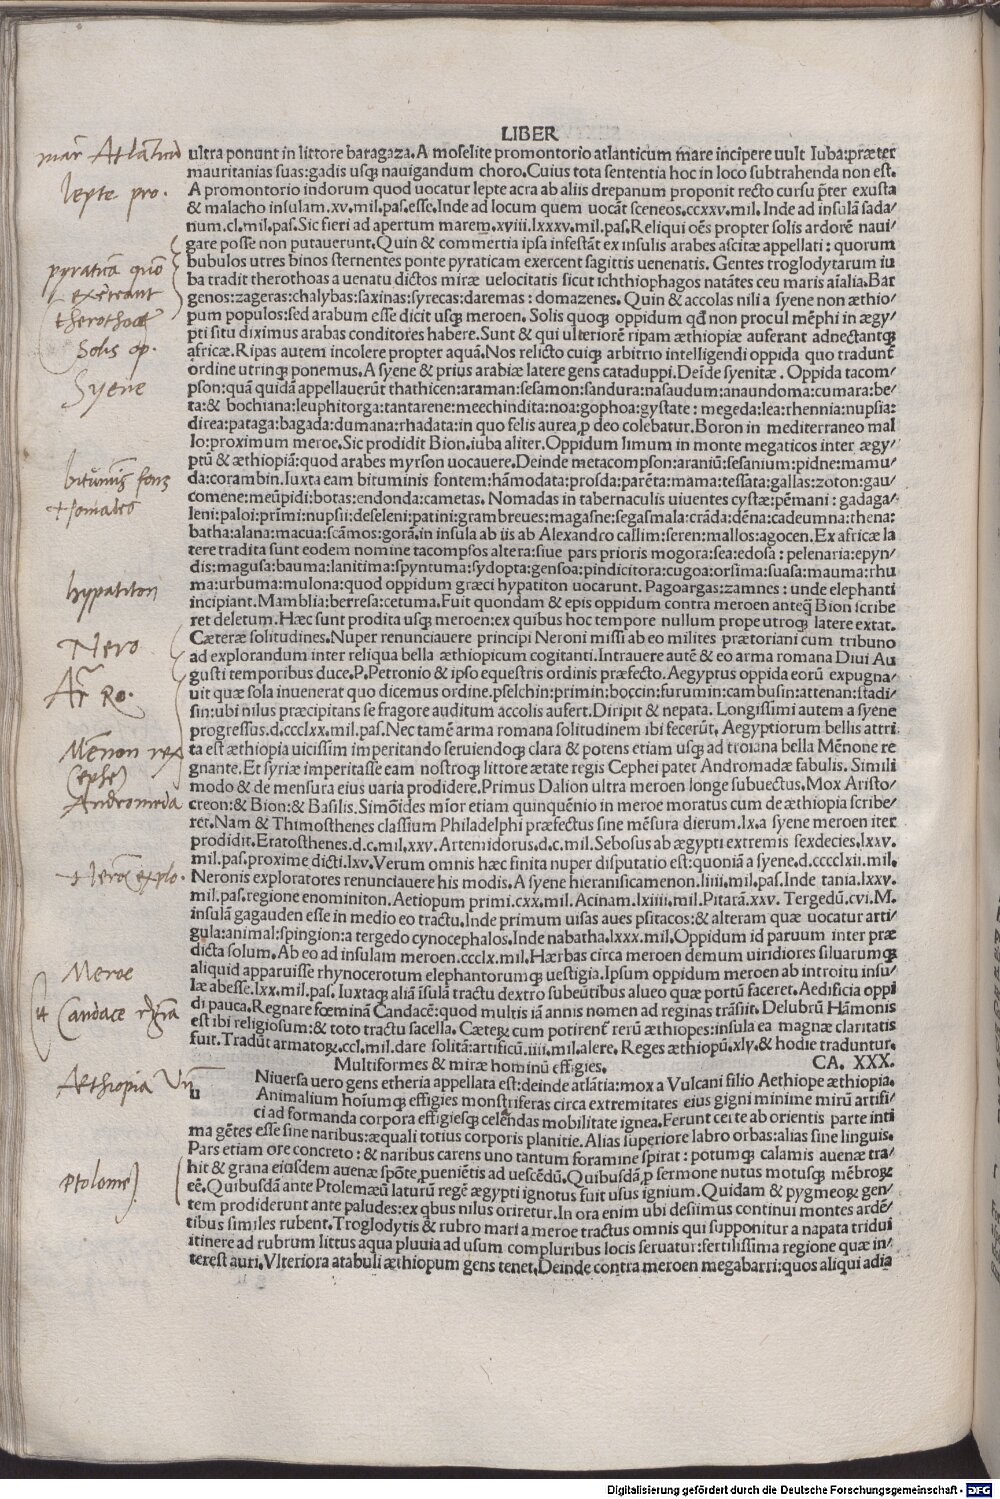 LIBER
ultra ponunt in littore baragaza.A moselite promontorio atlanticum mare incipere uult Iuba:præter
mauritanias suas:gadis usqȝ nauigandum choro.Cuius tota sententia hoc in loco subtrahenda non est.
A promontorio indorum quod uocatur lepte acra ab aliis drepanum proponit recto cursu p̄ter exusta
& malacho insulam.xv.mil.pas.esse.Inde ad locum quem uocāt sceneos.ccxxv.mil.Inde ad insulā sada/
num.cl.mil.pas.Sic fieri ad apertum marem.xviii.lxxxv.mil.pas.Reliqui oēs propter solis ardorē naui/
gare posse non putauerunt.Quin & commertia ipsa infestāt ex insulis arabes ascitæ appellati:quorum
bubulos utres binos sternentes ponte pyraticam exercent sagittis uenenatis.Gentes troglodytarum iu
ba tradit therothoas a uenatu dictos miræ uelocitatis sicut ichthiophagos natātes ceu maris aīalia.Bar
genos:zageras:chalybas:saxinas:syrecas:daremas:domazenes.Quin & accolas nili a syene non æthio/
pum populos:sed arabum esse dicit usqȝ meroen.Solis quoqȝ oppidum qđ non procul mēphi in ægy/
pti situ diximus arabas conditores habere.Sunt & qui ulteriorē ripam æthiopiæ auferant adnectantqȝ
africæ.Ripas autem incolere propter aquā.Nos relicto cuiqȝ arbitrio intelligendi oppida quo tradunt
ordine utrinqȝ ponemus.A syene & prius arabiæ latere gens cataduppi.Deīde syenitæ.Oppida tacom/
pson:quā quidā appellauerūt thathicen:araman:sesamon:sandura:nasaudum:anaundoma:cumara:be/
ta:& bochiana:leuphitorga:tantarene:meechindita:noa:gophoa:gystate:megeda:lea:rhennia:nupsia:
direa:pataga:bagada:dumana:rhadata:in quo felis aurea ꝓ deo colebatur.Boron in mediterraneo mal
lo:proximum meroe.Sic prodidit Bion.iuba aliter.Oppidum limum in monte megaticos inter ægy/
ptū & æthiopiā:quod arabes myrson uocauere.Deinde metacompson:araniū:sesanium:pidne:mamu/
da:corambin.Iuxta eam bituminis fontem:hāmodata:prosda:parēta:mama:tessata:gallas:zoton:gau/
comene:meūpidi:botas:endonda:cametas.Nomadas in tabernaculis uiuentes cystæ:pēmani:gadaga/
leni:paloi:prīmi:nupsii:deseleni:patini:grambreues:magasne:segasmala:crāda:dēna:cadeumna:thena:
batha:alana:macua:scāmos:gorā.in insula ab iis ab Alexandro callim:seren:mallos:agocen.Ex africæ la
tere tradita sunt eodem nomine tacompsos altera:siue pars prioris mogora:sea:edosa:pelenaria:epyn/
dis:magusa:bauma:lanitima:spyntuma:sydopta:gensoa:pindicitora:cugoa:orsima:suasa:mauma:rhu
ma:urbuma:mulona:quod oppidum græci hypatiton uocarunt.Pagoargas:zamnes:unde elephanti
incipiant.Mamblia:berresa:cetuma.Fuit quondam & epis oppidum contra meroen anteqȝ Bion scribe
ret deletum.Hæc sunt prodita usqȝ meroen:ex quibus hoc tempore nullum prope utroqȝ latere extat.
Cæteræ solitudines.Nuper renunciauere principi Neroni missi ab eo milites prætoriani cum tribuno
ad explorandum inter reliqua bella æthiopicum cogitanti.Intrauere autē & eo arma romana Diui Au
gusti temporibus duce.P.Petronio & ipso equestris ordinis præfecto.Aegyptus oppida eorū expugna/
uit quæ sola inuenerat quo dicemus ordine.pselchin:primin:boccin:furumin:cambusin:attenan:stadi/
sin:ubi nilus præcipitans se fragore auditum accolis aufert.Diripit & nepata.Longissimi autem a syene
progressus.d.cccclxx.mil.pas.Nec tamē arma romana solitudinem ibi fecerūt.Aegyptiorum bellis attri
ta est æthiopia uicissim imperitando seruiendoqȝ clara & potens etiam usqȝ ad troiana bella Mēnone re
gnante.Et syriæ imperitasse eam nostroqȝ littore ætate regis Cephei patet Andromadæ fabulis.Simili
modo & de mensura eius uaria prodidere.Primus Dalion ultra meroen longe subuectus.Mox Aristo/
creon:& Bion:& Basilis.Simōides mīor etiam quinquēnio in meroe moratus cum de æthiopia scribe/
ret.Nam & Thimosthenes classium Philadelphi præfectus sine mēsura dierum.lx.a syene meroen iter
prodidit.Eratosthenes.d.c.mil.xxv.Artemidorus.d.c.mil.Sebosus ab ægypti extremis sexdecies.lxxv.
mil.pas.proxime dicti.lxv.Verum omnis hæc finita nuper disputatio est:quoniā a syene.d.cccclxii.mil.
Neronis exploratores renunciauere his modis.A syene hieranisicamenon.liiii.mil.pas.Inde tania.lxxv.
mil.pas.regione enominiton.Aetiopum primi.cxx.mil.Acinam.lxiiii.mil.Pitarā.xxv.Tergedū.cvi.M.
insulā gagauden esse in medio eo tractu.Inde primum uisas aues psitacos:& alteram quæ uocatur arti/
gula:animal:spingion:a tergedo cynocephalos.Inde nabatha.lxxx.mil.Oppidum id paruum inter præ
dicta solum.Ab eo ad insulam meroen.ccclx.mil.Hærbas circa meroen demum uiridiores siluarumqȝ
aliquid apparuisse rhynocerotum elephantorumqȝ uestigia.Ipsum oppidum meroen ab introitu insu/
læ abesse.lxx.mil.pas.Iuxtaqȝ aliā īsulā tractu dextro subeūtibus alueo quæ portū faceret.Aedificia oppi
di pauca.Regnare fœminā Candacē:quod multis iā annis nomen ad reginas trāsiit.Delubrū Hāmonis
est ibi religiosum:& toto tractu sacella.Cæteꝝ cum potirent̄ rerū æthiopes:insula ea magnæ claritatis
fuit.Tradūt armatoꝝ.ccl.mil.dare solitā:artificū.iiii.mil.alere.Reges æthiopū.xlv.& hodie traduntur.
Multiformes & miræ hominū effigies. CA. XXX.
u Niuersa uero gens etheria appellata est:deinde atlātia:mox a Vulcani filio Aethiope æthiopia.
Animalium hoīumqȝ effigies monstriferas circa extremitates eius gigni minime mirū artifi/
ci ad formanda corpora effigiesqȝ celēdas mobilitate ignea.Ferunt certe ab orientis parte inti
ma gētes esse sine naribus:æquali totius corporis planitie.Alias superiore labro orbas:alias sine linguis.
Pars etiam ore concreto:& naribus carens uno tantum foramine spirat:potumqȝ calamis auenæ tra/
hit & grana eiusdem auenæ spōte ꝓueniētis ad uescēdū.Quibusdā ꝓ sermone nutus motusqȝ mēbroꝝ
eē.Quibusdā ante Ptolemæū laturū regē ægypti ignotus fuit usus ignium.Quidam & pygmeoꝝ gen/
tem prodiderunt ante paludes:ex qbus nilus oriretur.In ora enim ubi desiimus continui montes ardē/
tibus similes rubent.Troglodytis & rubro mari a meroe tractus omnis qui supponitur a napata tridui
itinere ad rubrum littus aqua pluuia ad usum compluribus locis seruatur:fertilissima regione quæ in/
terest auri.Vlteriora atabuli æthiopum gens tenet.Deinde contra meroen megabarri:quos aliqui adia
mar Atlanticū
lepte pro.
pyraticā quō
exerceant
therothoæ
Solis op.
Syene
bituminis fons
Nomades
hypatiton
Nero
Ar. Ro.
Mēnon rex
Cephe)
Andromeda
Neroīs explo.
Meroe
Candace regīa
Æthiopia Vn̄
Ptolome)
Digitalisierung gefördert durch die Deutsche Forschungsgemeinschaft - DFG